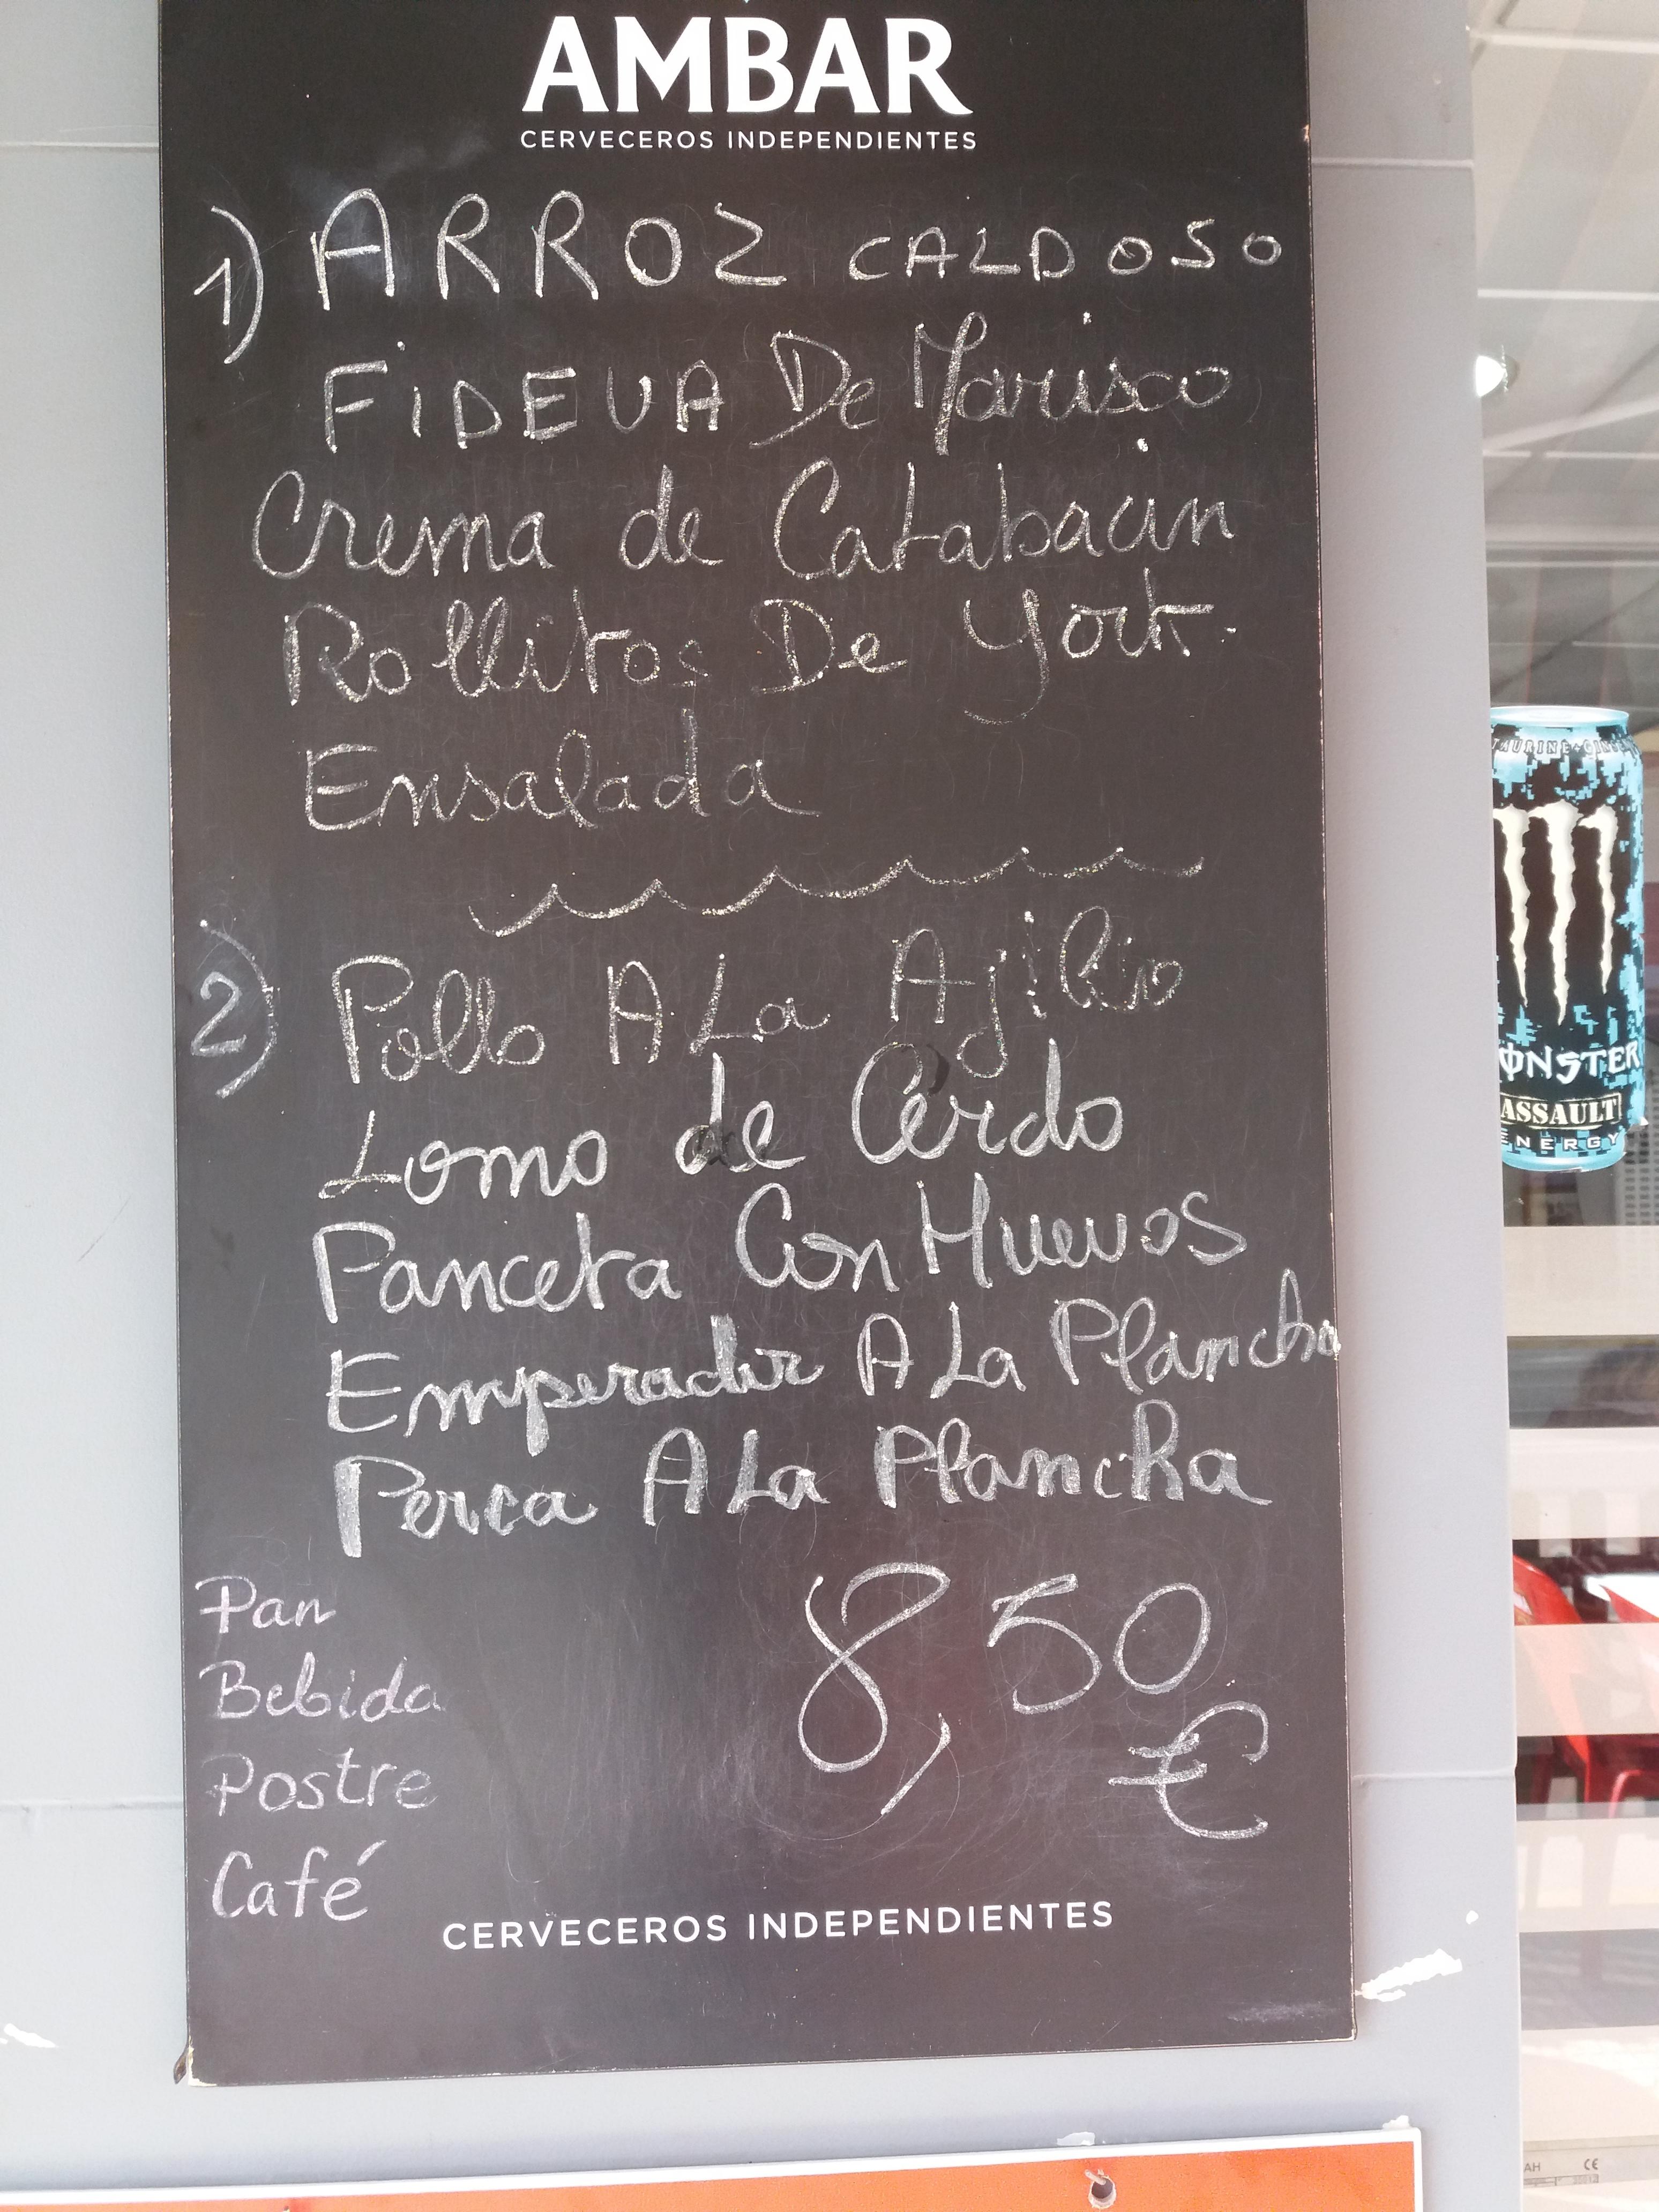 AMBAR
CERVECEROS INDEPENDIENTES
1) ARROZ CALDOSO
FiDEUA De Marisco
Crema de Calabacin
Rollitos De York.
Ensalada
2) Pollo A La Ajillo
Lomo de Cerdo
Panceta Con Huevos
Emperador A La Plancha
Perca A La Plancha
Pan
Bebida
Postre
Café
8,50
€
CERVECEROS INDEPENDIENTES
MONSTER
ASSAULT
ENERGY
AH CE